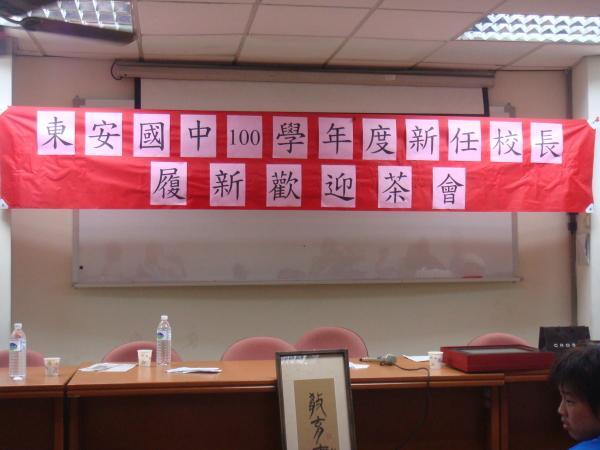 東安國中100學年度新任校長
履新歡迎茶會
教育